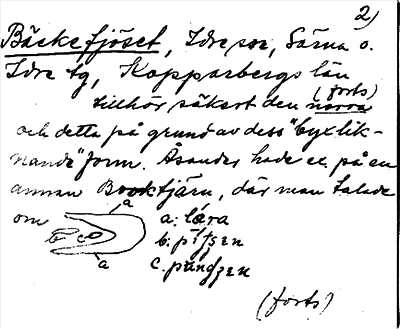 2)
Bäckefjöset, Idre sn, Särna o.
Idre tg, Kopparbergs län
(forts)
tillhör säkert den norra
och detta på grund av dess "byxlik-
nande" form. Åsander hade ex. på en
annan Brooktjärn, där man talade
om
a
a: låra
b c
b: pitsen
a
c. pungzen
(forts)